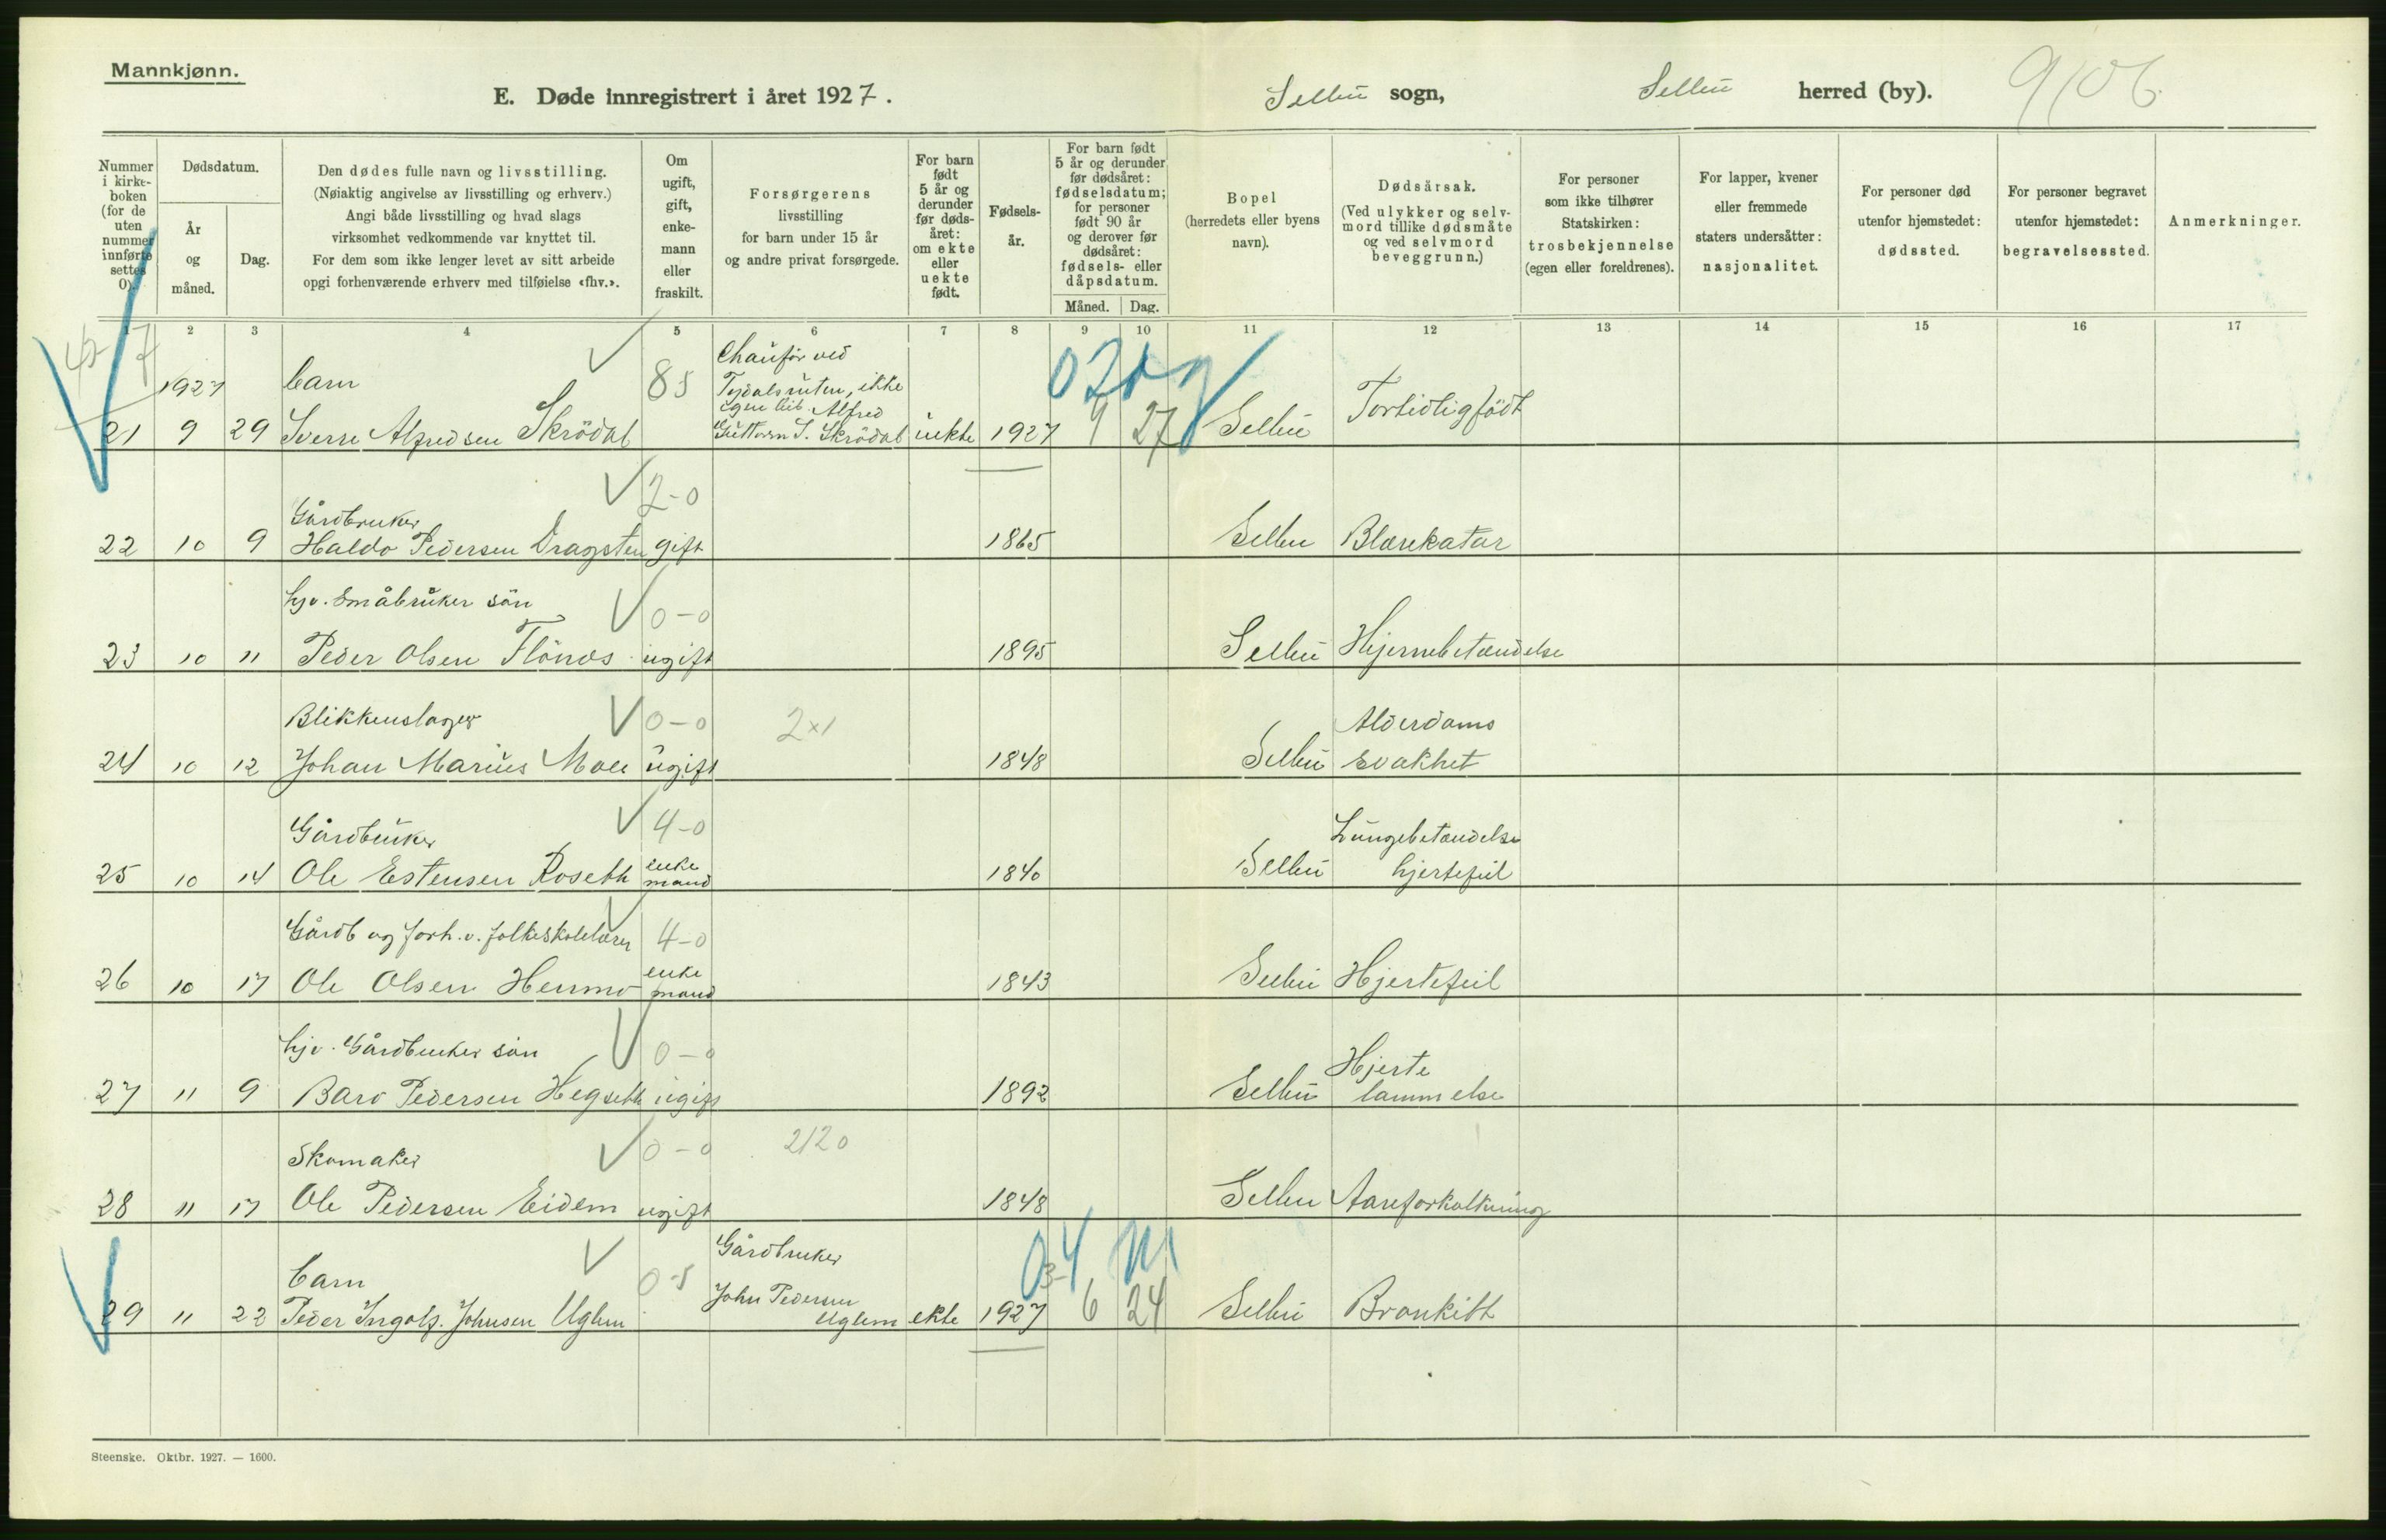 Mannkjønn.
E. Døde innregistrert i året 1927.
Selbu sogn,
Selbu herred (by).
9106
Nummer i kirke-boken (for de uten nummer innførte settes 0).
Dødsdatum.
År og måned.
Dag.
Den dødes fulle navn og livsstilling.
(Nøiaktig angivelse av livsstilling og erhverv.)
Angi både livsstilling og hvad slags
virksomhet vedkommende var knyttet til.
For dem som ikke lenger levet av sitt arbeide
opgi forhenværende erhverv med tilføielse «fhv.».
Om ugift, gift, enke-mann eller fraskilt.
Forsørgerens
livsstilling
for barn under 15 år
og andre privat forsørgede.
For barn født 5 år og derunder før døds-året: om ekte eller uekte født.
Fødsels-år.
For barn født 5 år og derunder før dødsåret: fødselsdatum; for personer født 90 år og derover før dødsåret: fødsels- eller dåpsdatum.
Måned. Dag.
Bopel
(herredets eller byens navn).
Dødsårsak.
(Ved ulykker og selv-mord tillike dødsmåte og ved selvmord beveggrunn.)
For personer som ikke tilhører Statskirken: trosbekjennelse (egen eller foreldrenes).
For lapper, kvener eller fremmede staters undersåtter: nasjonalitet.
For personer død utenfor hjemstedet: dødssted.
For personer begravet utenfor hjemstedet: begravelsessted.
Anmerkninger.
1 2 3 4 5 6 7 8 9 10 11 12 13 14 15 16 17
1927 barn 85 Chauför ved
Tydalsruten, ikke
egen bil. Alfred
21 9 29 Sverre Alfredsen Skrödal Guttorm S. Skrödal uekte 1927 9 27 Selbu Fortidligfödt
Gårdbruker 2-0
22 10 9 Haldo Pedersen Dragsten gift 1865 Selbu Blærekatar
hjv. Småbruker sön 0-0
23 10 11 Peder Olsen Flönæs ugift 1895 Selbu Hjernebetændelse
Blikkenslager 0-0 2x1 Alderdoms
24 10 12 Johan Marius Moee ugift 1848 Selbu svakhet
Gårdbruker 4-0 Lungebetændelse
25 10 14 Ole Estensen Roseth enke mand 1840 Selbu hjertefeil
Gårdb og forh.v. folkeskolelærer 4-0
26 10 17 Ole Olsen Hernmo enke mand 1843 Selbu Hjertefeil
hjv. Gårdbruker sön 0-0 Hjerte
27 11 9 Baro Pedersen Hegseth ugift 1892 Selbu lammelse
Skomaker 0-0 2120
28 11 17 Ole Pedersen Eidem ugift 1848 Selbu Aareforkalkning
barn 0-5 Gårdbruker 0-4 m
John Pedersen
29 11 22 Peder Ingolf. Johnsen Uglem Uglem ekte 1927 6 24 Selbu Bronkitt
Steenske. Oktbr. 1927. — 1600.